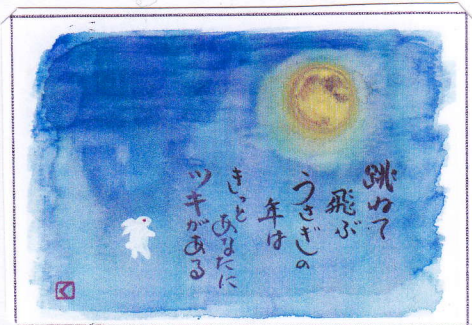 跳ねて
飛ぶ
うさぎの
年は
きっと あなたに
ツキがある
く